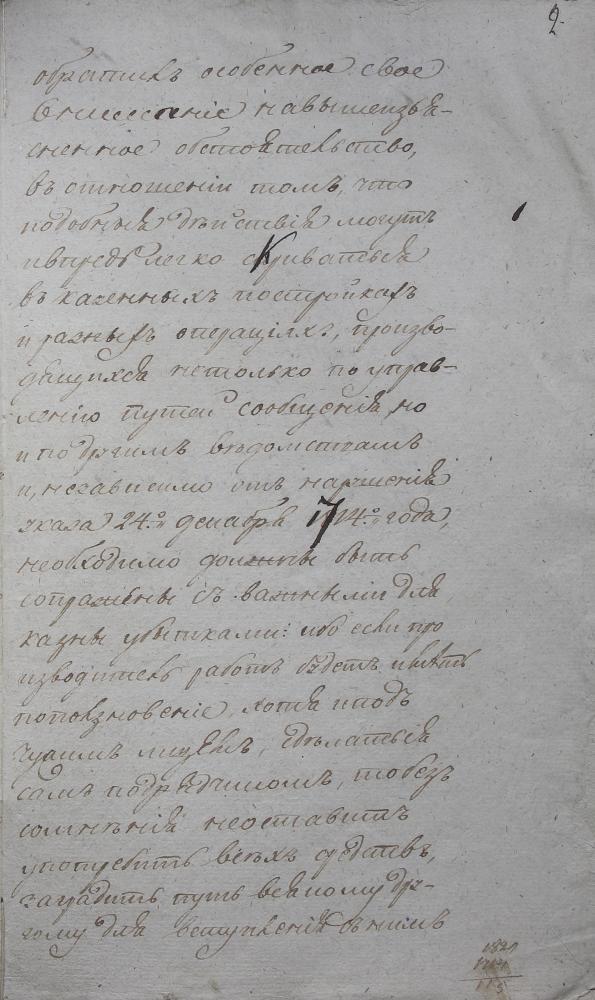 2.
обратилъ особенное свое
вниманіе на вышеизъя-
сненное обстоятельство,
въ отношеніи томъ, что
подобныя дѣйствія могутъ
и впредь легко скриваться
въ казенныхъ постройкахъ
и разныхъ операціяхъ, произво-
дящихся не только по управ-
ленію путей сообщенія, но
и по другимъ вѣдомствамъ
и, независимо отъ нарушенія
указа 24го декабря 1714го года,
необходимо должны быть
сопряжены съ важными для
казны убытками: ибо если про
изводитель работъ будетъ имѣть
поползновеніе, хотя и подъ
чужимъ лицемъ, сдѣлаться
самъ подрядчикомъ, то безъ
сомнѣнія не оставитъ
употребить всѣхъ средствъ,
заградить путь всякому дру-
гому для вступленія съ нимъ
1829
1714
115